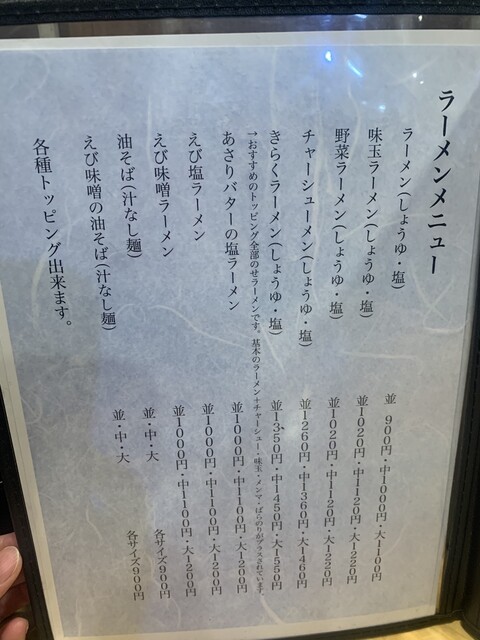 ラーメンメニュー
ラーメン(しょうゆ・塩) 並 900円・中1000円・大1100円
味玉ラーメン(しょうゆ・塩) 並1020円・中1120円・大1220円
野菜ラーメン(しょうゆ・塩) 並1020円・中1120円・大1220円
チャーシューメン(しょうゆ・塩) 並1260円・中1360円・大1460円
きらくラーメン(しょうゆ・塩) 並1350円・中1450円・大1550円
→おすすめのトッピング全部のせラーメンです。基本のラーメン+チャーシュー・味玉・メンマ・ばらのりがプラスされています。
あさりバターの塩ラーメン 並1000円・中1100円・大1200円
えび塩ラーメン 並1000円・中1100円・大1200円
えび味噌ラーメン 並1000円・中1100円・大1200円
油そば(汁なし麺) 並・中・大 各サイズ900円
えび味噌の油そば(汁なし麺) 並・中・大 各サイズ900円
各種トッピング出来ます。